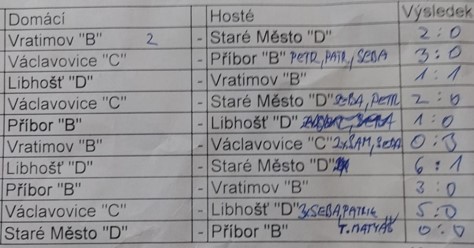 Domácí Hosté Výsledek
Vratimov "B" 2 - Staré Město "D" 2:0
Václavovice "C" - Příbor "B" PETR, PATR, SEBA 3:0
Libhošť "D" - Vratimov "B" 1:1
Václavovice "C" - Staré Město "D" SEBA, PETR 2:0
Příbor "B" - Libhošť "D" 1:0
Vratimov "B" - Václavovice "C" 2x SAM, SEBA 0:3
Libhošť "D" - Staré Město "D" 6:1
Příbor "B" - Vratimov "B" 3:0
Václavovice "C" - Libhošť "D" 3x SEBA, PATRIK 5:0
T. MATYÁŠ
Staré Město "D" - Příbor "B" 0:0